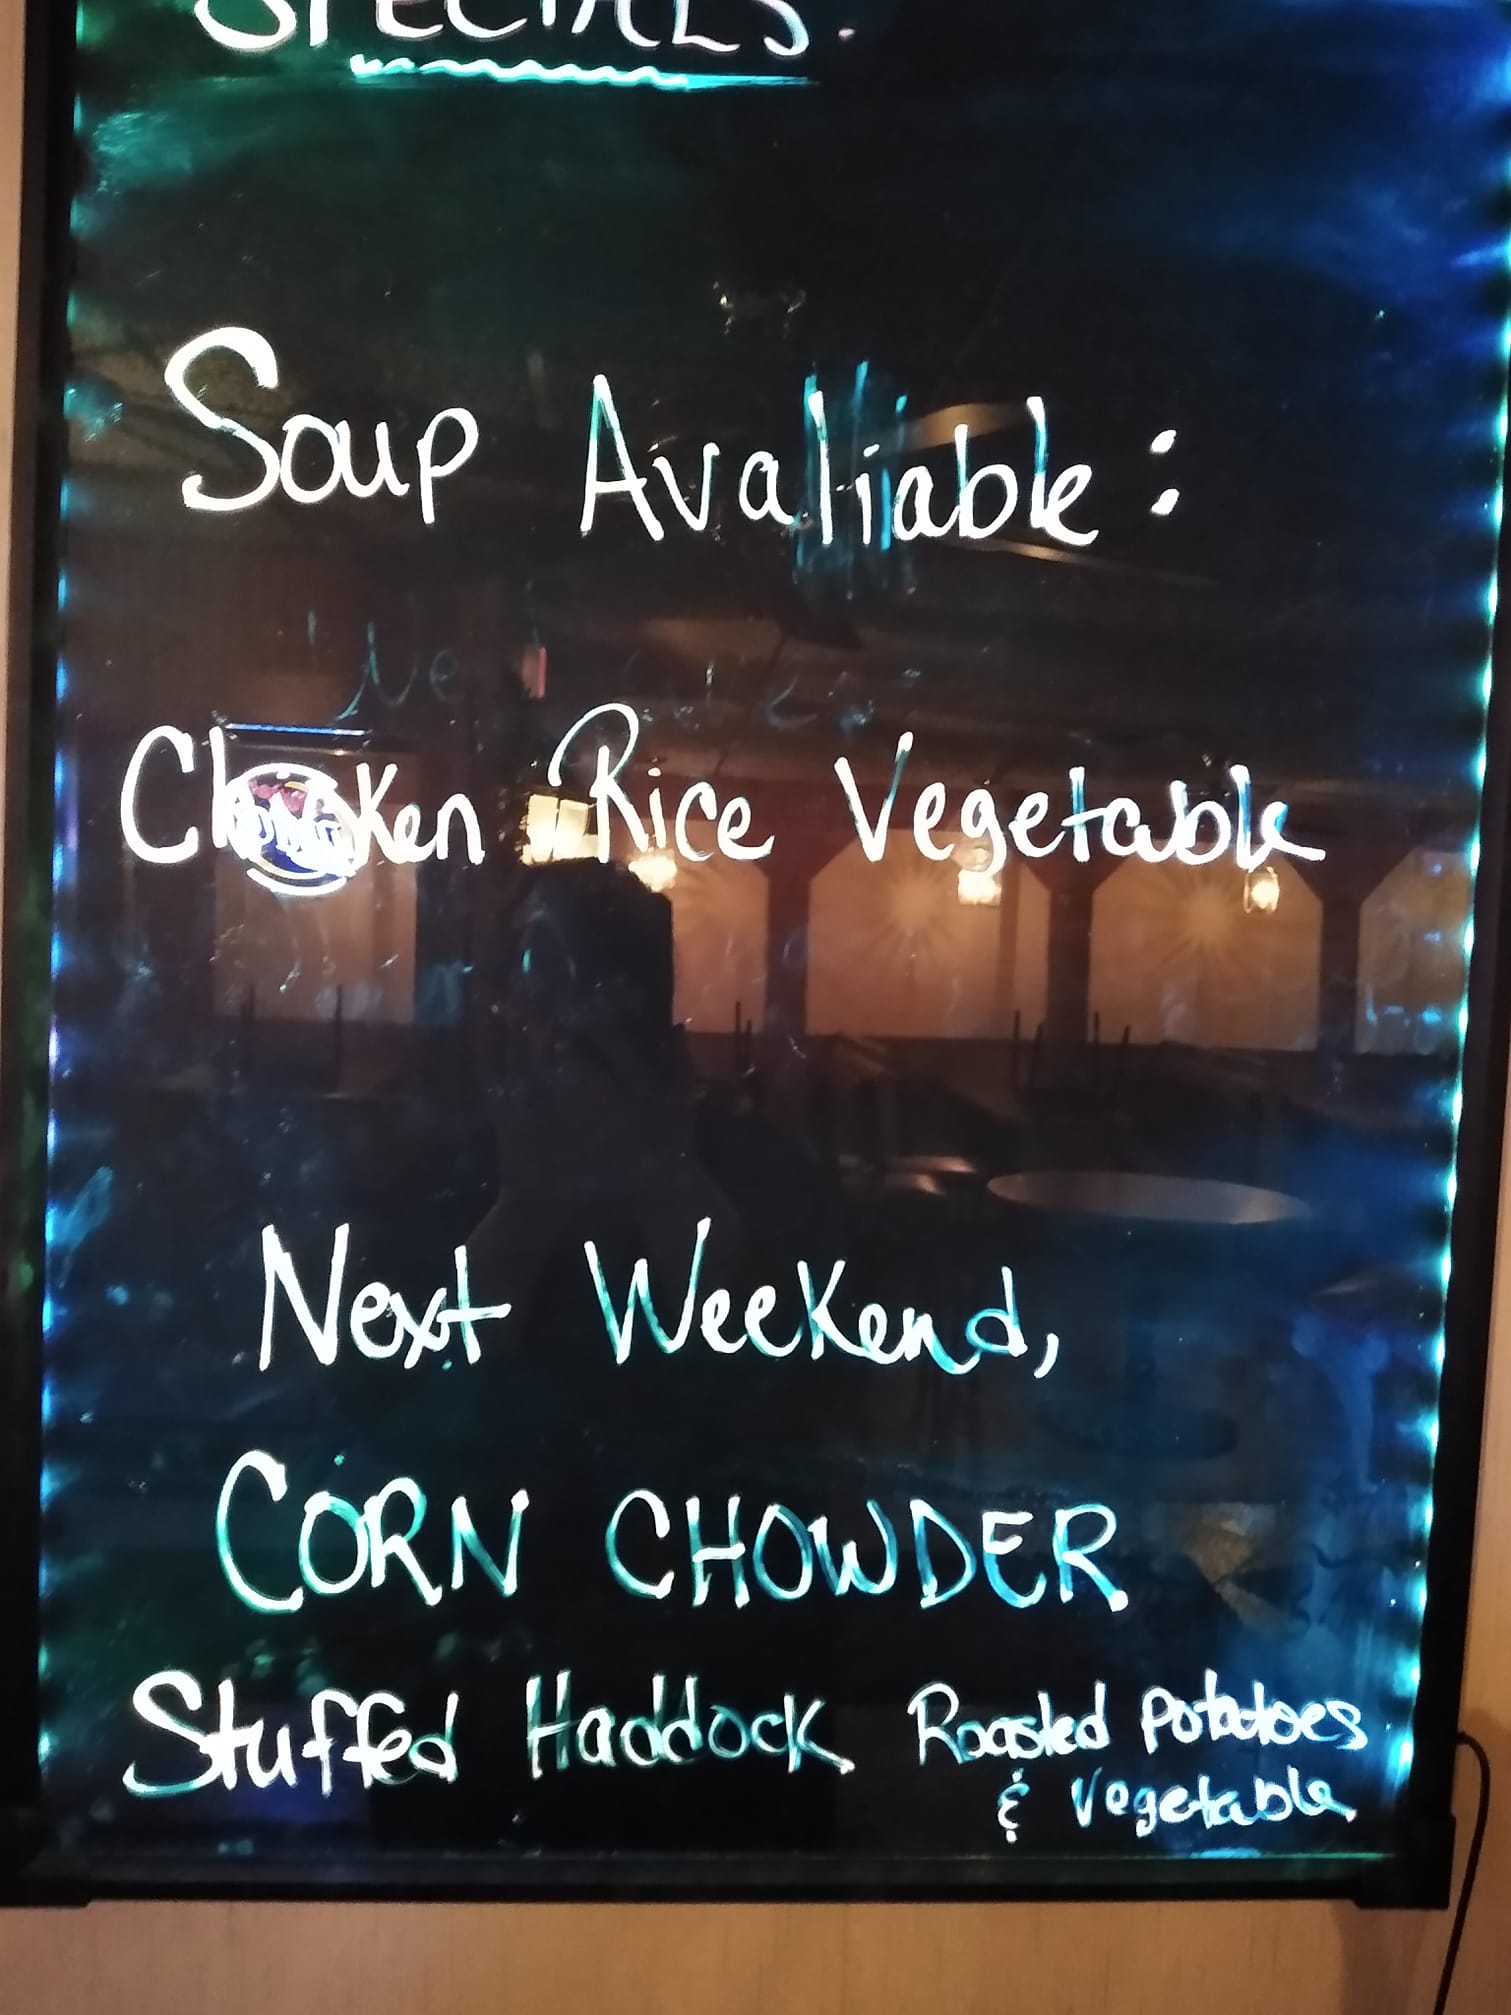 SPECIALS:
Soup Avaliable:
Chicken Rice Vegetable
Next Weekend,
CORN CHOWDER
Stuffed Haddock Roasted Potatoes
& Vegetable